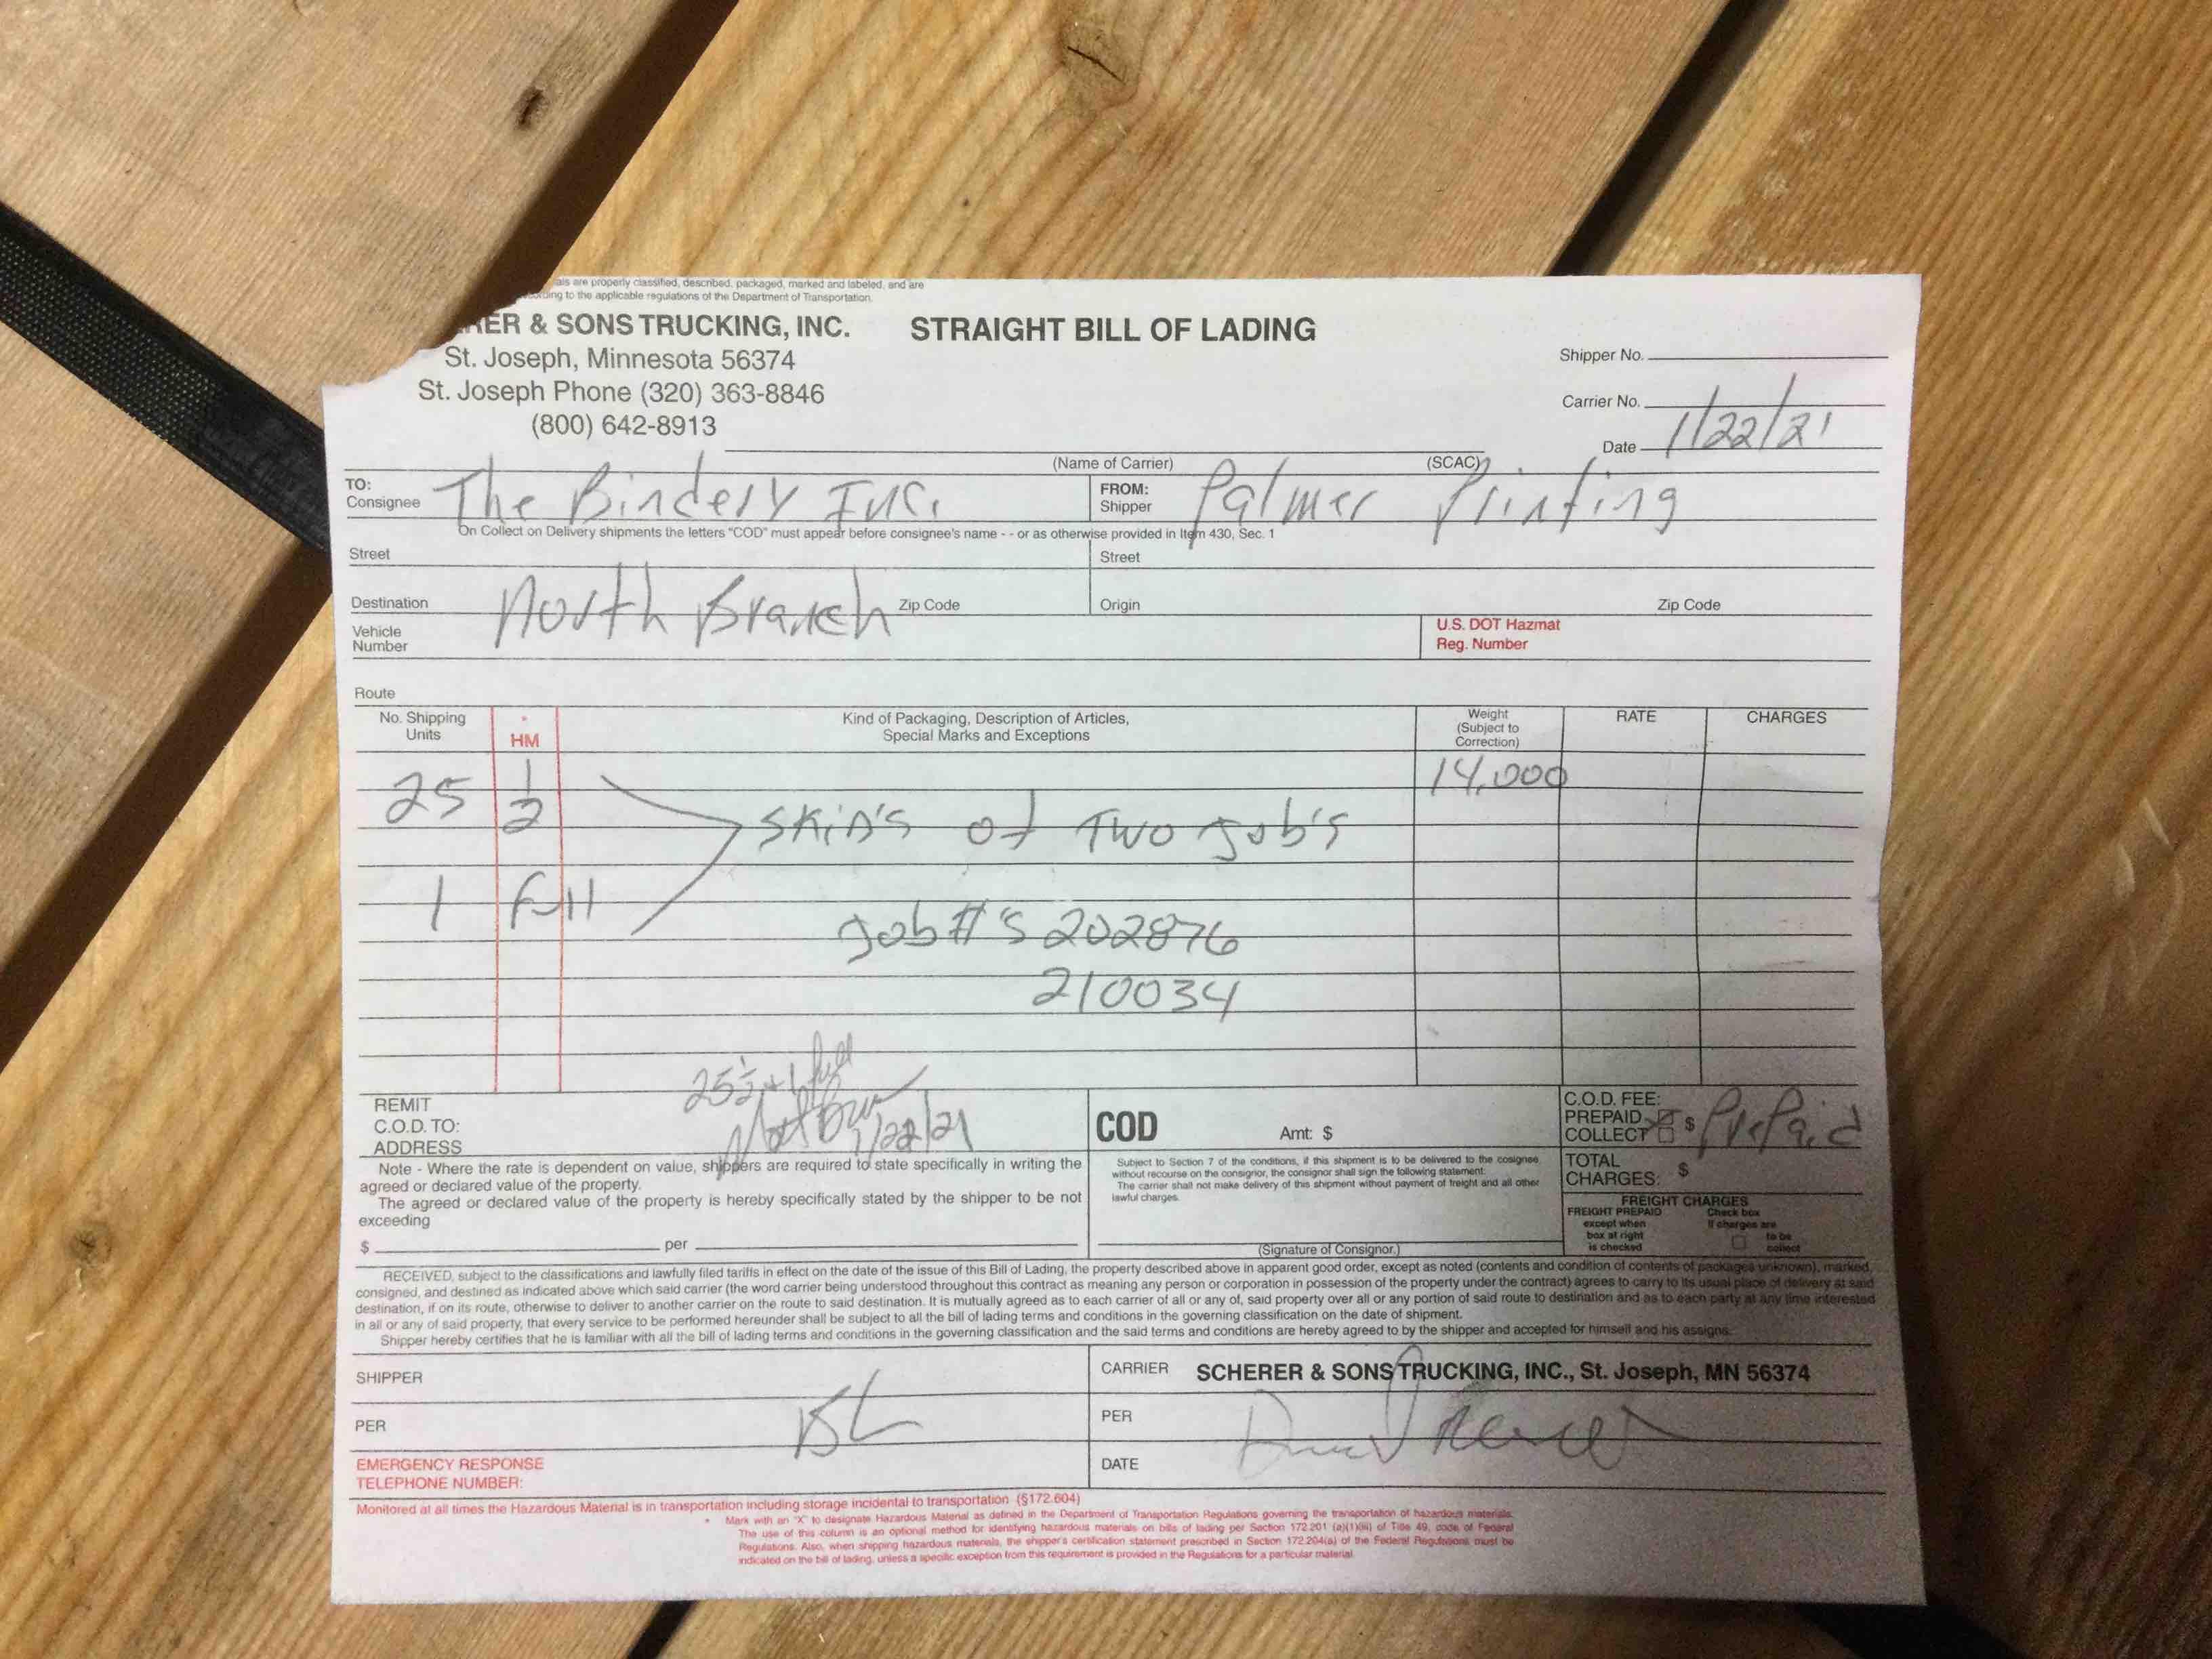 als are properly classified, described, packaged, marked and labeled, and are
ording to the applicable regulations of the Department of Transportation.
ER & SONS TRUCKING, INC.
STRAIGHT BILL OF LADING
St. Joseph, Minnesota 56374
St. Joseph Phone (320) 363-8846
(800) 642-8913
Shipper No.
Carrier No.
Date 1/22/21
(Name of Carrier) (SCAC)
TO: Consignee The Bindery Inc.
FROM: Shipper Palmer Printing
On Collect on Delivery shipments the letters "COD" must appear before consignee's name - - or as otherwise provided in Item 430, Sec. 1
Street
Street
Destination North Branch Zip Code
Origin Zip Code
Vehicle Number
U.S. DOT Hazmat
Reg. Number
Route
No. Shipping Units
* HM
Kind of Packaging, Description of Articles,
Special Marks and Exceptions
Weight
(Subject to
Correction)
RATE
CHARGES
25 1/2 14,000
SKiD'S of Two Job's
1 full
Job #'s 202876
210034
25 1/2 + 1 full
1/22/21
REMIT
C.O.D. TO:
ADDRESS
COD Amt: $
C.O.D. FEE:
PREPAID $ PrePaid
COLLECT
Note - Where the rate is dependent on value, shippers are required to state specifically in writing the
agreed or declared value of the property.
The agreed or declared value of the property is hereby specifically stated by the shipper to be not
exceeding
$ per
Subject to Section 7 of the conditions, if this shipment is to be delivered to the cosignee
without recourse on the consignor, the consignor shall sign the following statement:
The carrier shall not make delivery of this shipment without payment of freight and all other
lawful charges.
(Signature of Consignor.)
TOTAL
CHARGES: $
FREIGHT CHARGES
FREIGHT PREPAID
except when
box at right
is checked
Check box
if charges are
to be
collect
RECEIVED, subject to the classifications and lawfully filed tariffs in effect on the date of the issue of this Bill of Lading, the property described above in apparent good order, except as noted (contents and condition of contents of packages unknown), marked,
consigned, and destined as indicated above which said carrier (the word carrier being understood throughout this contract as meaning any person or corporation in possession of the property under the contract) agrees to carry to its usual place of delivery at said
destination, if on its route, otherwise to deliver to another carrier on the route to said destination. It is mutually agreed as to each carrier of all or any of, said property over all or any portion of said route to destination and as to each party at any time interested
in all or any of said property, that every service to be performed hereunder shall be subject to all the bill of lading terms and conditions in the governing classification on the date of shipment.
Shipper hereby certifies that he is familiar with all the bill of lading terms and conditions in the governing classification and the said terms and conditions are hereby agreed to by the shipper and accepted for himself and his assigns.
SHIPPER
CARRIER SCHERER & SONS TRUCKING, INC., St. Joseph, MN 56374
PER BL
PER
EMERGENCY RESPONSE
TELEPHONE NUMBER:
DATE
Monitored at all times the Hazardous Material is in transportation including storage incidental to transportation (§172.604)
* Mark with an "X" to designate Hazardous Material as defined in the Department of Transportation Regulations governing the transportation of hazardous materials.
The use of this column is an optional method for identifying hazardous materials on bills of lading per Section 172.201 (a)(1)(iii) of Title 49, code of Federal
Regulations. Also, when shipping hazardous materials, the shipper's certification statement prescribed in Section 172.204(a) of the Federal Regulations must be
indicated on the bill of lading, unless a specific exception from this requirement is provided in the Regulations for a particular material.